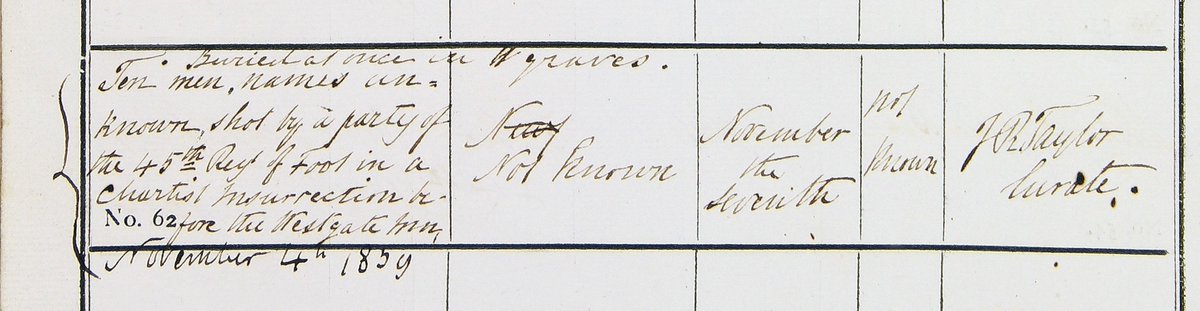 Buried at once in 4 graves.
Ten men, names un=
known, shot by a party of
the 45th Regt of Foot in a
Chartist Insurrection be-
No. 62 fore the Westgate Inn,
November 4th 1839
Not known
November
the
seventh
not
known
J R Taylor
Curate.